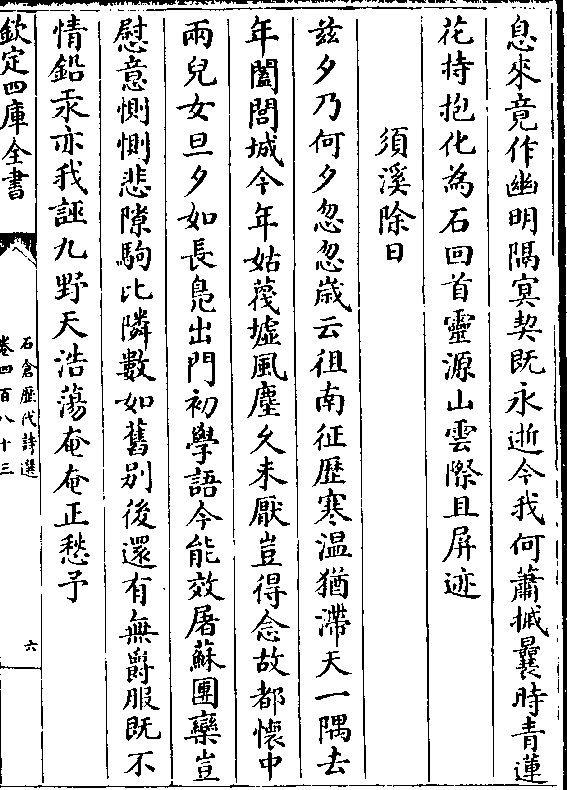 息來竟作幽明隔冥契既永逝今我何蕭摵曩時青蓮
花持抱化為石回首靈源山雲際且屏迹
須溪除日
兹夕乃何夕忽忽嵗云徂南征歴寒温猶滯天一隅去
年闔閭城今年姑蔑墟風塵久未厭豈得念故都懷中
兩兒女旦夕如長鳬出門初學語今能效屠蘇團欒豈
慰意惻惻悲隙駒比隣數如舊别後還有無爵服既不
情鉛汞亦我誣九野天浩蕩奄奄正愁予
欽定四庫全書
石倉歴代詩選
卷四百八十三
六